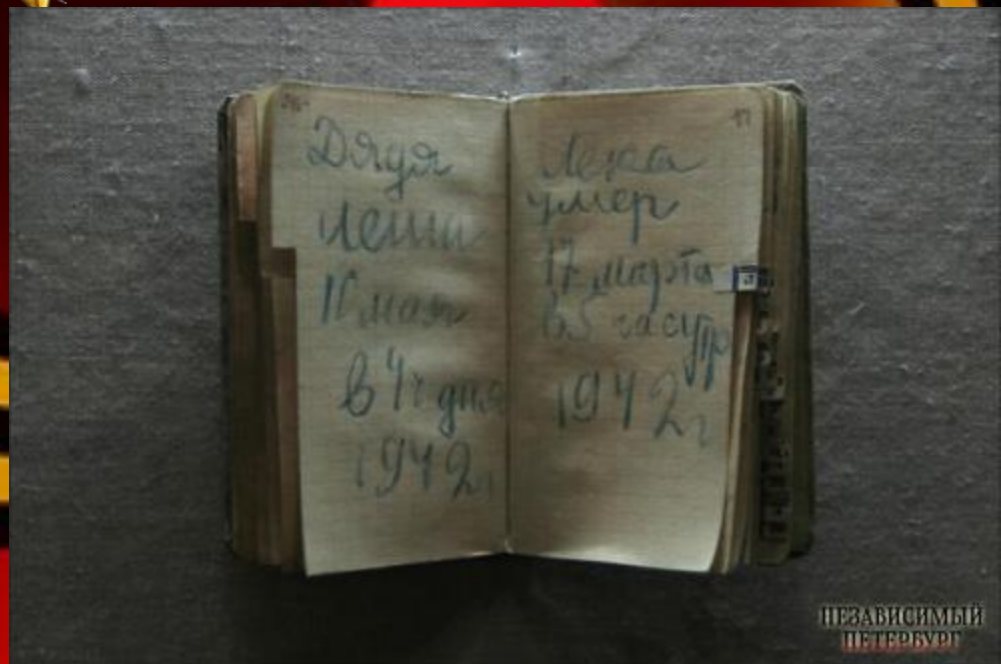 Дядя
Леша
10 мая
в 4 ч дня
1942 г
Лека
умер
17 марта
в 5 час утр
1942 г
НЕЗАВИСИМЫЙ
ПЕТЕРБУРГ